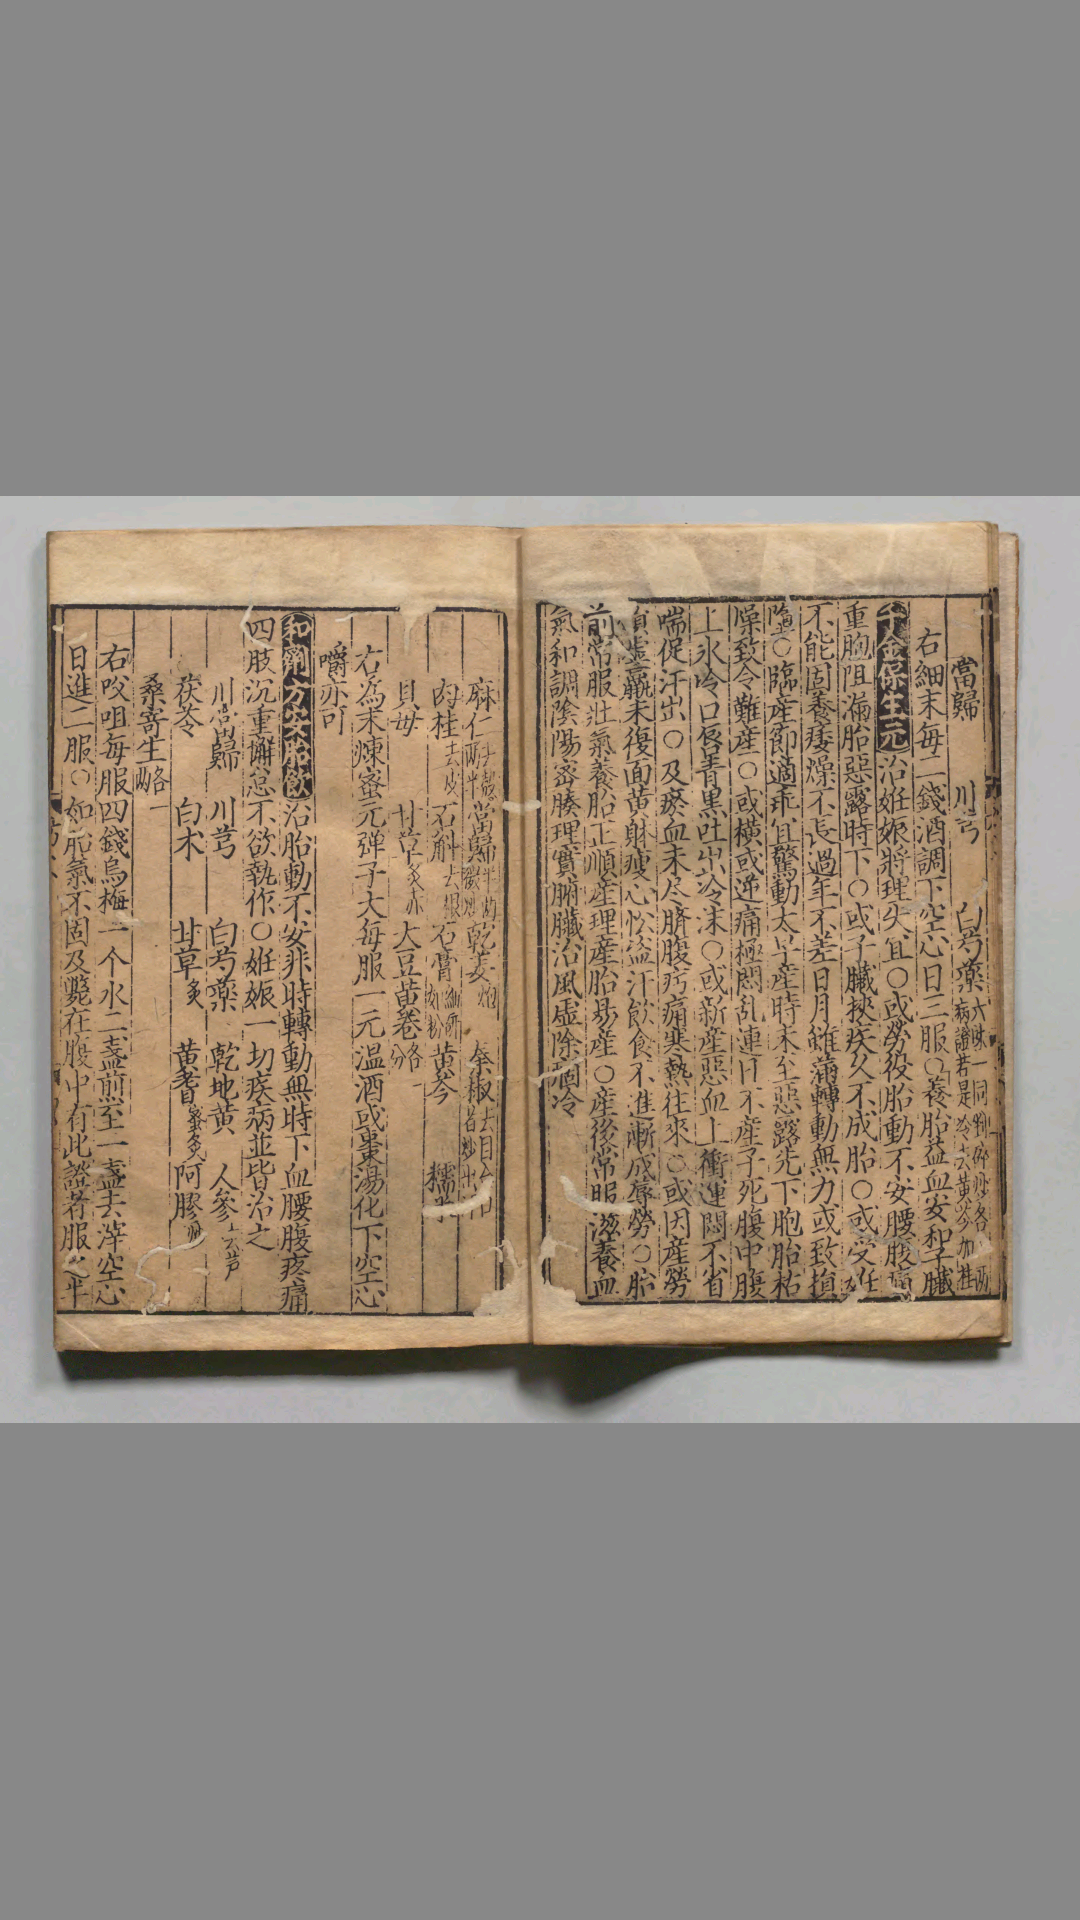 當歸 川芎 白芍藥 六味一同 病證若是冷去黃芩加桂
右細末每二錢酒調下空心日三服○養胎益血安和子臟
千金保生元 治姙娠將理失宜○或勞役胎動不安腰腹痛
重胞阻漏胎惡露時下○或子臟挾疾久不成胎○或受妊
不能固養痿燥不長過年不差日月雖滿轉動無力或致損
隕○臨產節適乖宜驚動太早產時未至惡露先下胞胎枯
燥致令難產○或橫或逆痛極悶乱連日不產子死腹中腹
上氷冷口唇青黑吐出冷沫○或新產惡血上衝連悶不省
喘促汗出○及瘀血未尽臍腹疠痛寒熱往來○或因產勞
損虛羸未復面黃躰瘦心忪盜汗飲食不進漸成蓐勞○胎
前常服壯氣養胎正順產理產胎易產○產後常服滋養血
氣和調陰陽密腠理實腑臟治風虛除痼冷
麻仁 去殼兩半 當歸 半兩微炒 乾姜 炮 秦椒 去目
肉桂 去皮 石斛 去根 石膏 細研如粉 黃芩 糯米
貝母 甘草 炙亦 大豆黃卷 各一分
右為末煉蜜元彈子大每服一元温酒或棗湯化下空心
嚼亦可
和劑方安胎飲 治胎動不安非時轉動無時下血腰腹疼痛
四肢沉重懈怠不欲執作○姙娠一切疾病並皆治之
川當歸 川芎 白芍藥 乾地黃 人參 去芦
茯苓 白术 甘草 炙 黃耆 蜜炙 阿膠 炒
桑寄生 各一兩
右㕮咀每服四錢烏梅一个水二盞煎至一盞去滓空心
日進二服○如胎氣不固及斃在腹中有此證者服之半